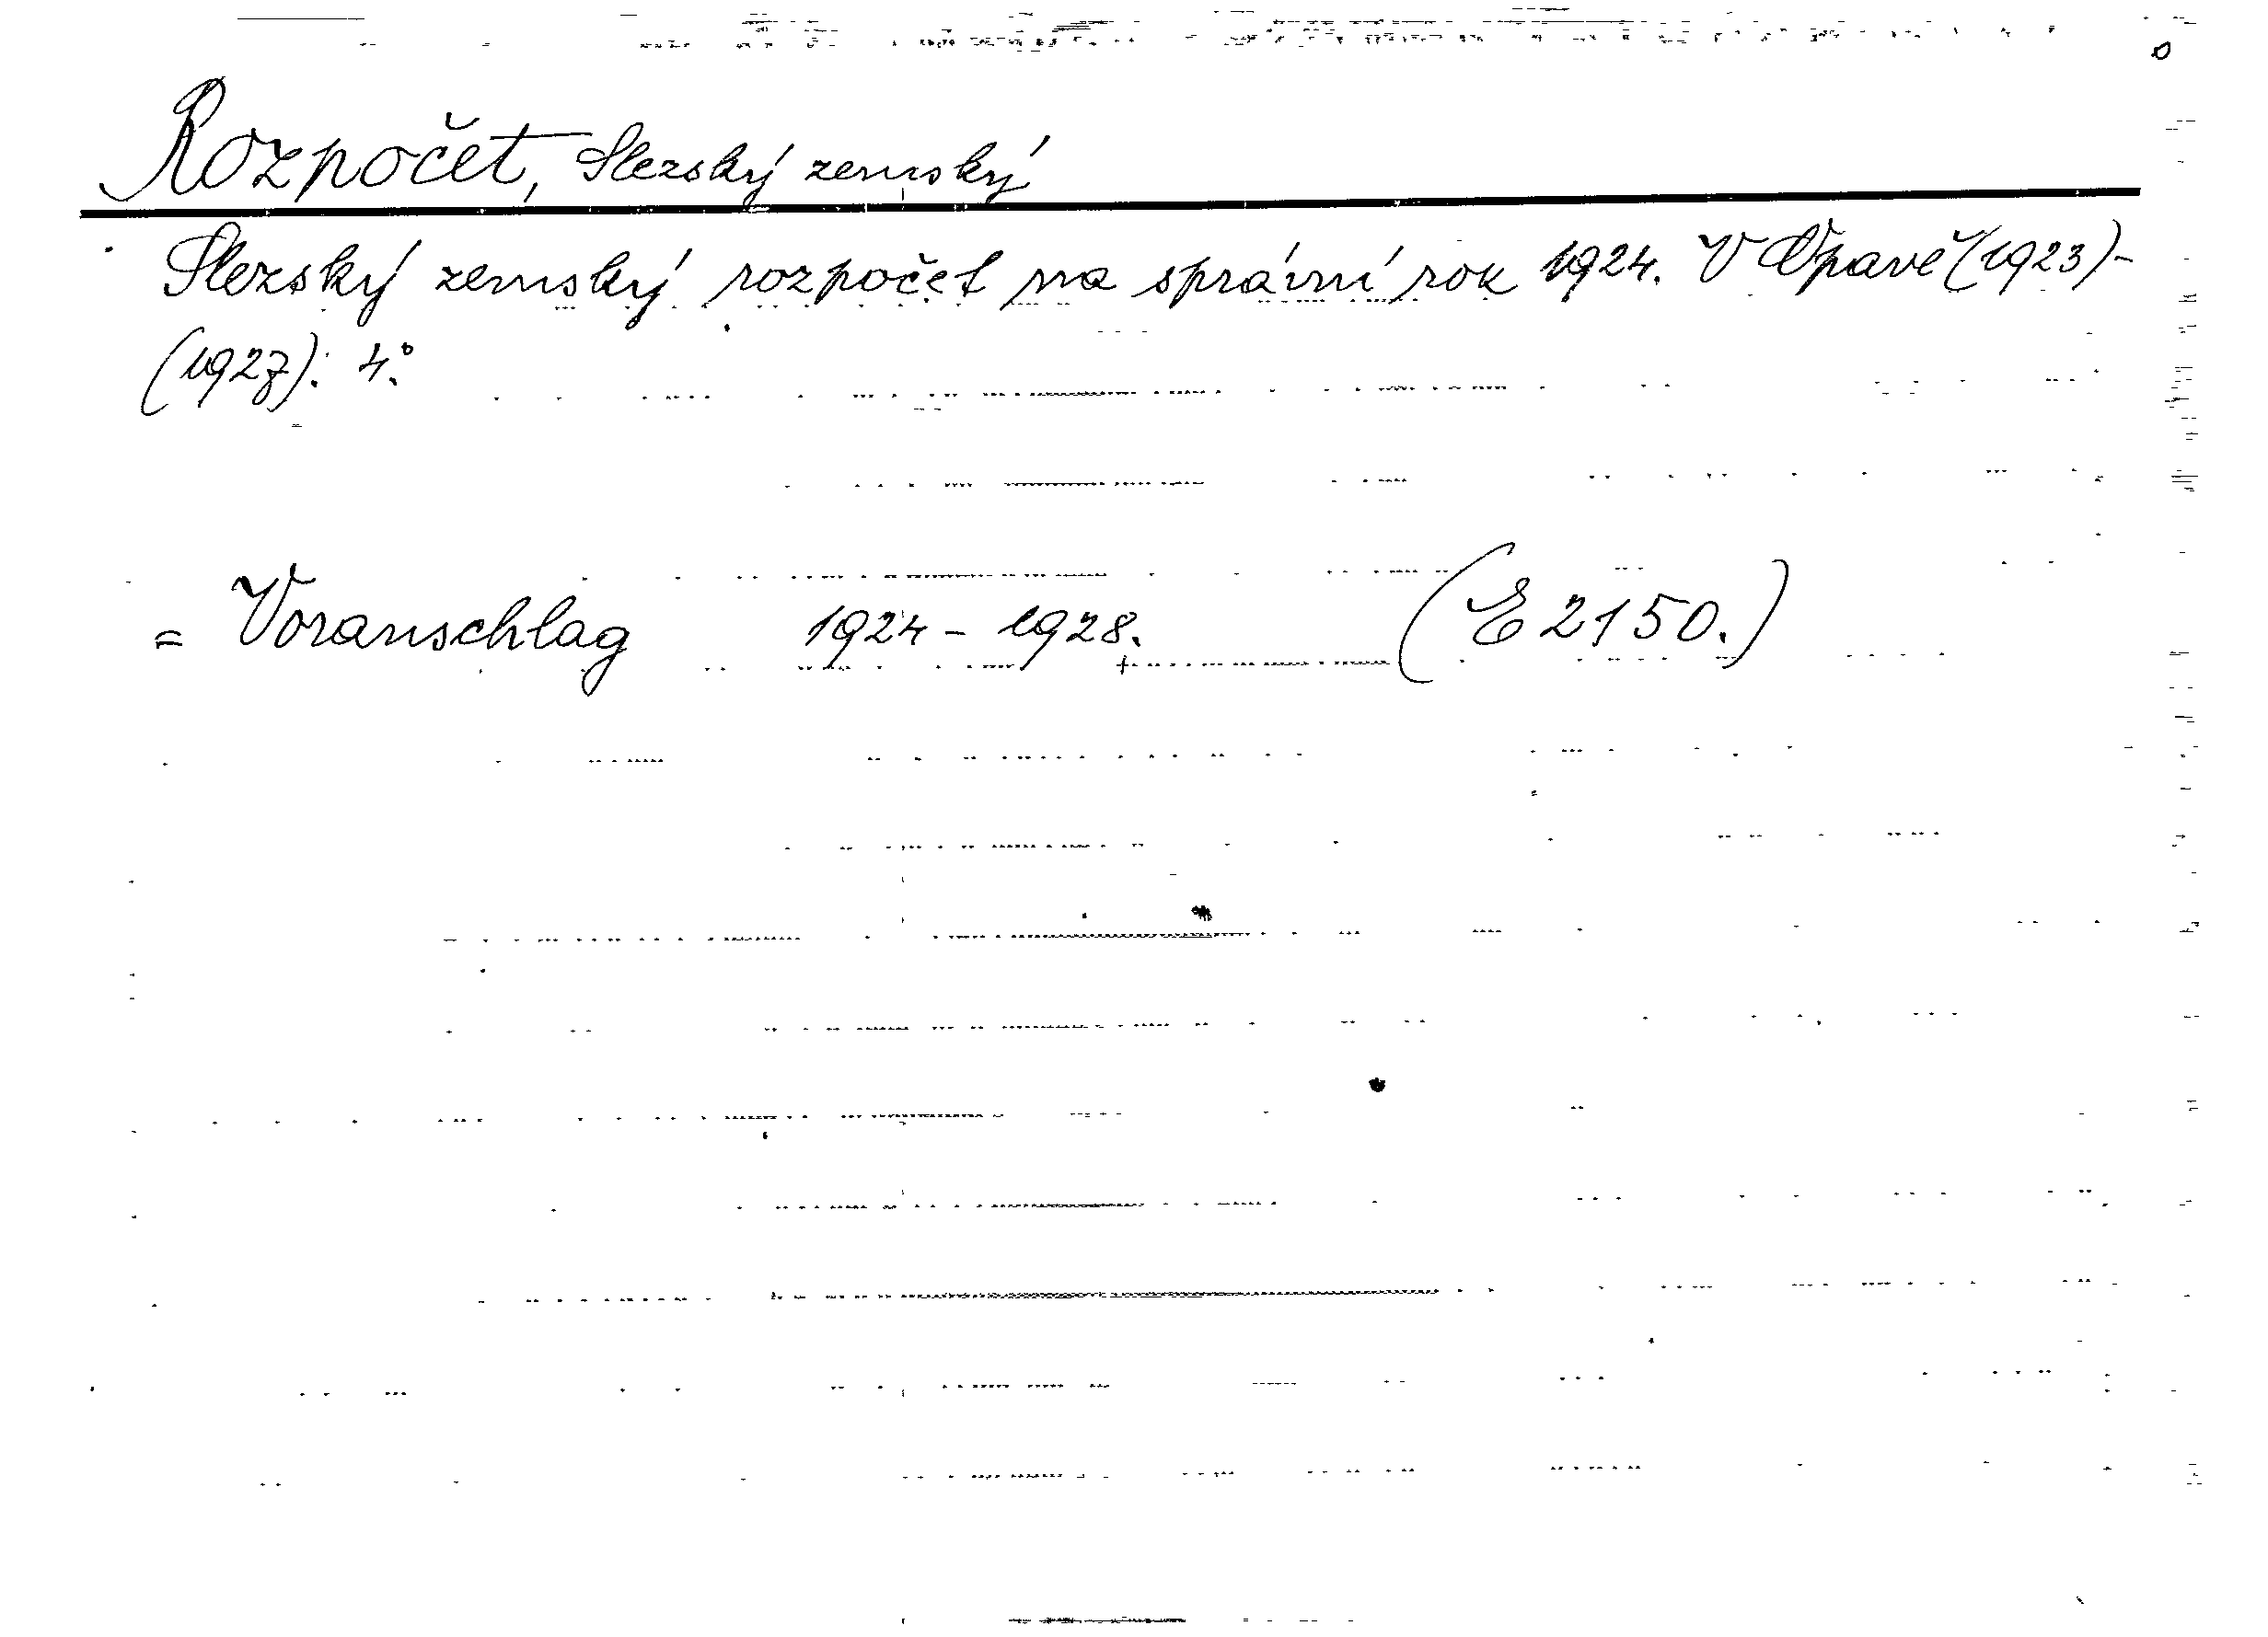 Rozpočet, Slezský zemský
Slezský zemský rozpočet na správní rok 1924. V Opavě (1923)-
(1927). 4°.
= Voranschlag 1924 - 1928. (E 2150.)